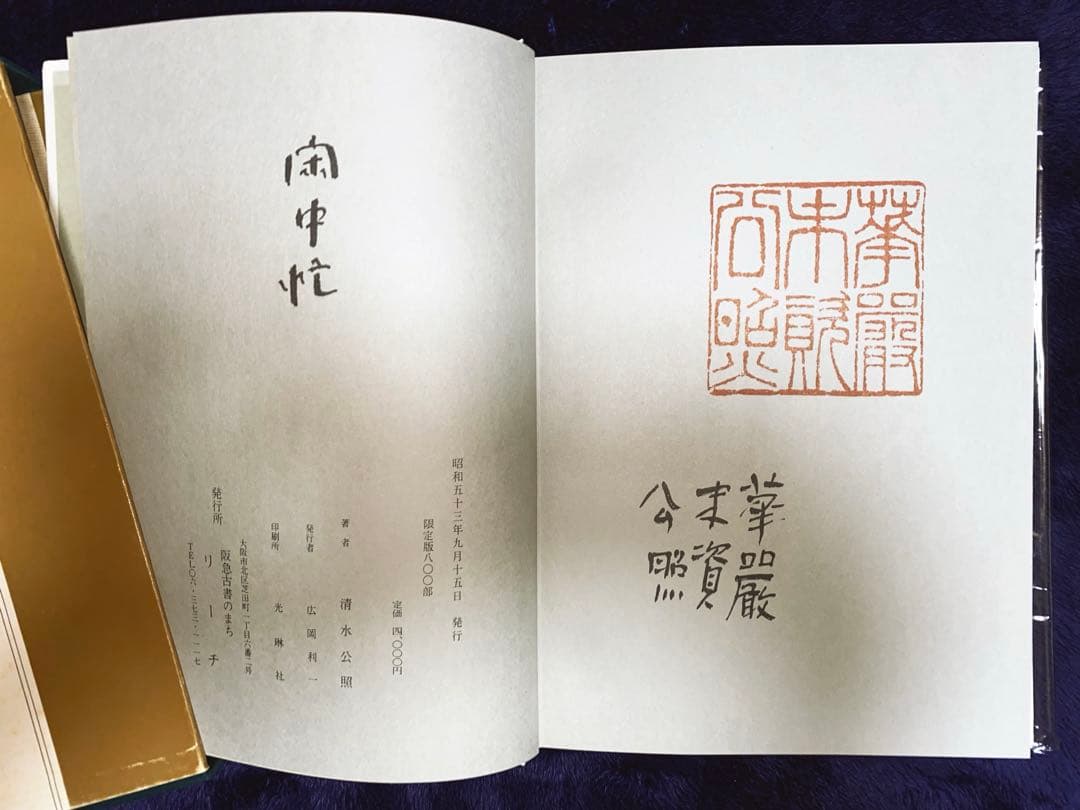 華嚴
末資
公照
華嚴
末資
公照
閑中忙
昭和五十三年九月十五日 発行
限定版八〇〇部
定価 四、〇〇〇円
著者 清水公照
発行者 広岡利一
印刷所 光琳社
大阪市北区芝田町一丁目六番二外
阪急古書のまち
発行所 リーチ
TEL〇六・三七三・一一一七